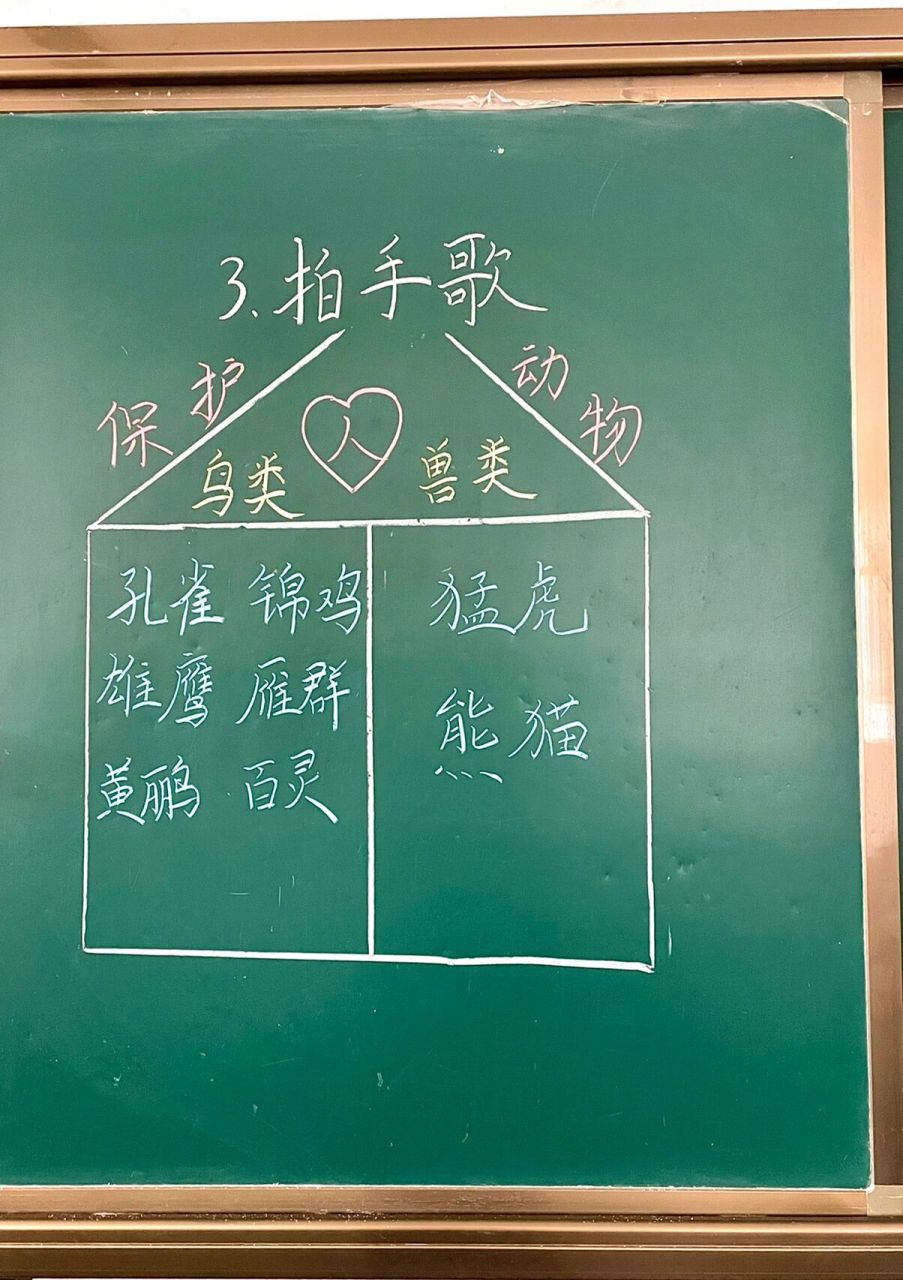 3.拍手歌
保护 动物
人
鸟类 兽类
孔雀 锦鸡 猛虎
雄鹰 雁群 熊猫
黄鹂 百灵